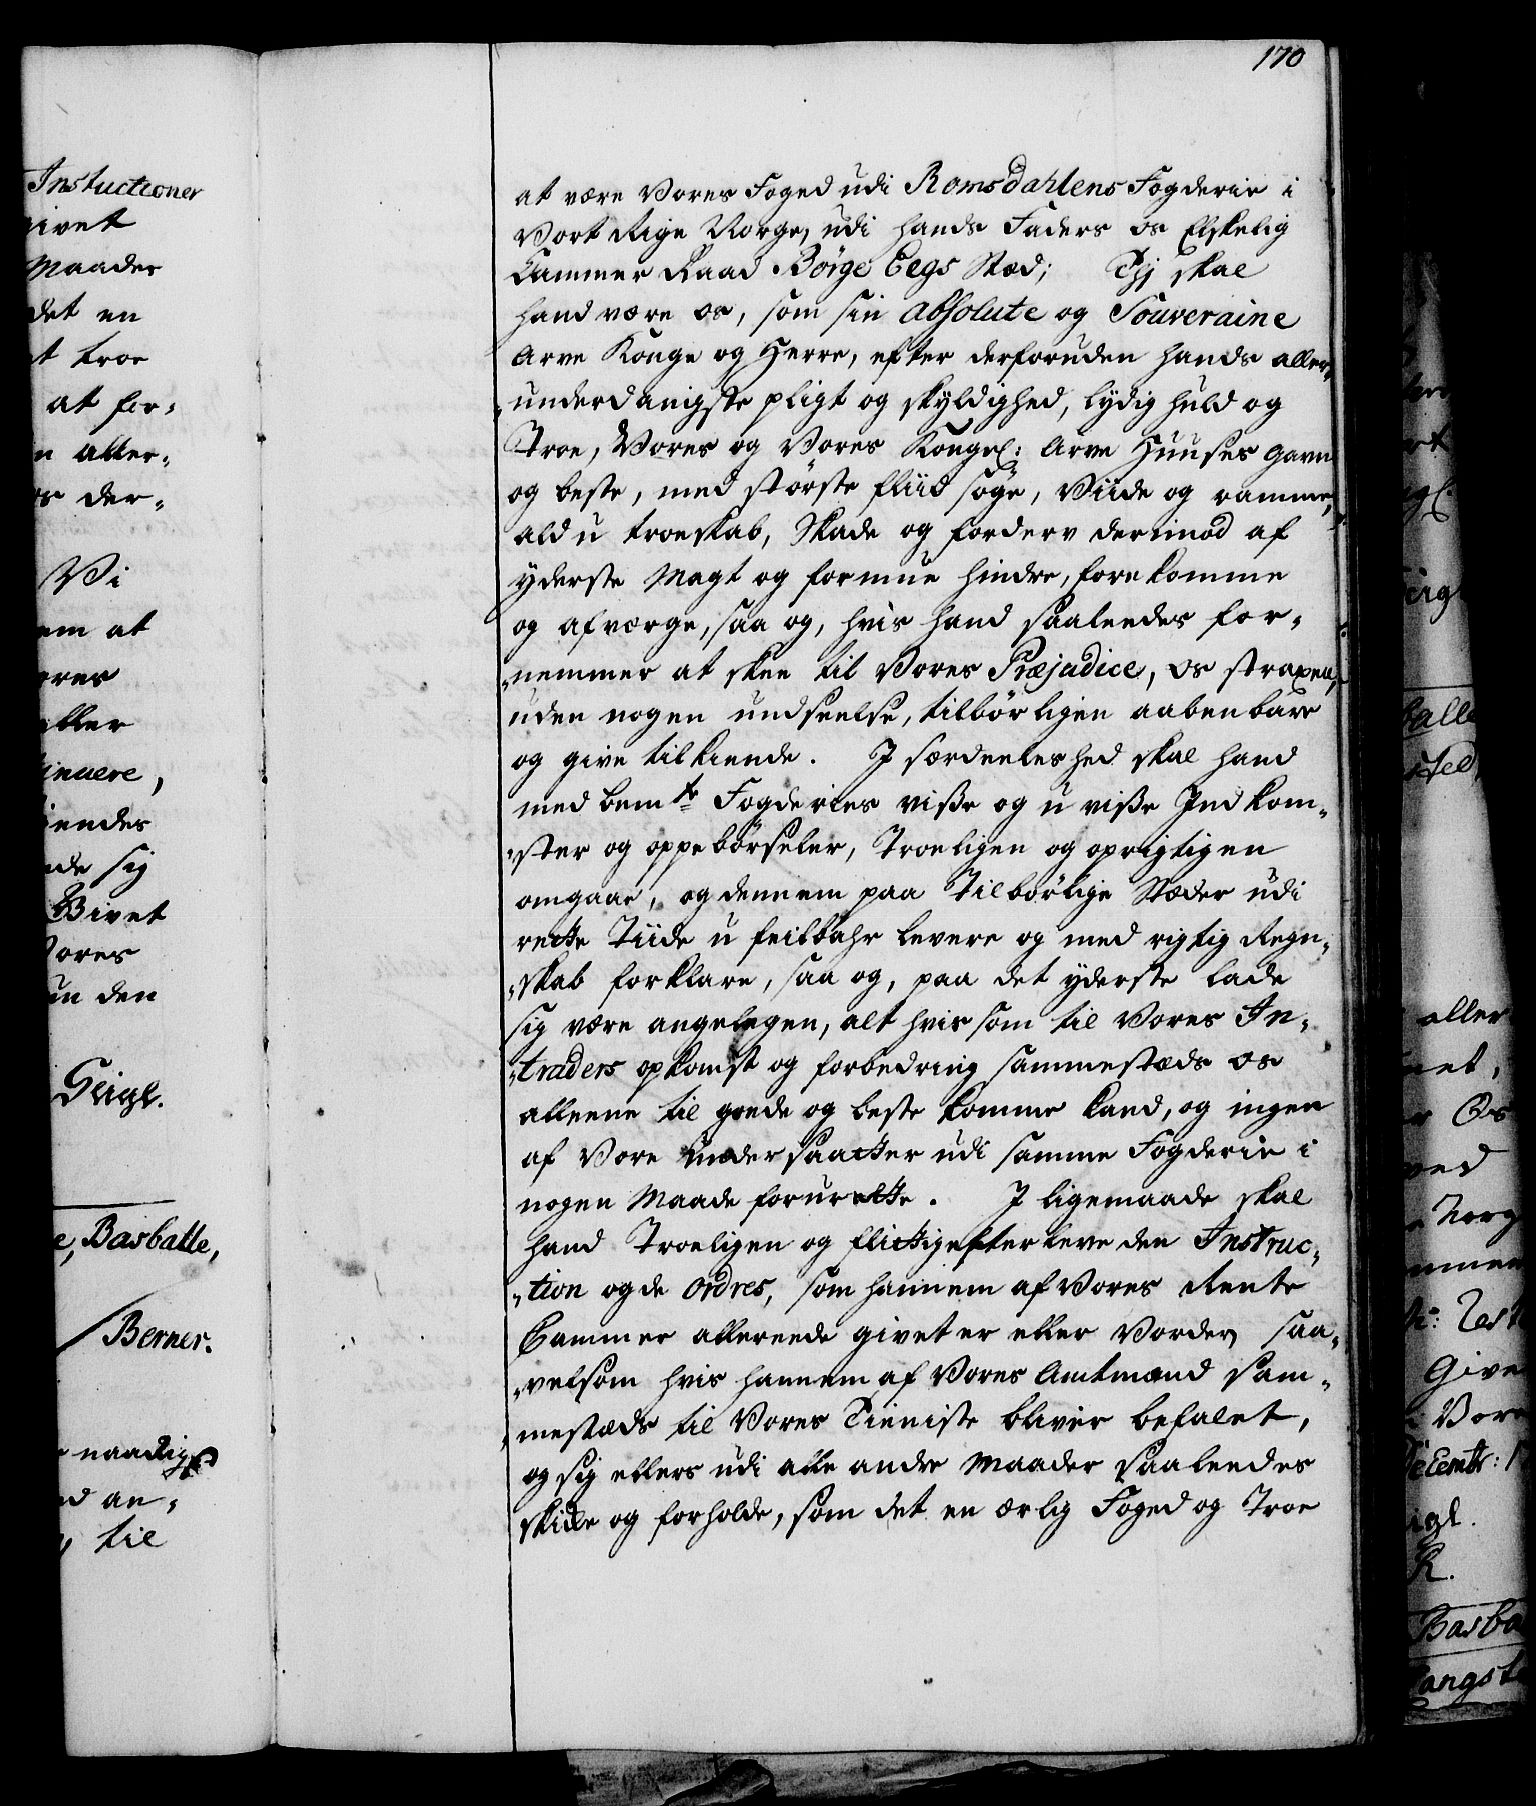 170
Instuctioner
givet
Maader
det en
troe
at for-
aller-
der-
Vi
em at
eller
inuere,
iendes
nde sig
Bivet
Vores
den
Geigl.
Basballe,
Berner.
naadigst
an-
til
at være Vores Foged udi Romsdahlens Fogderie i
Vort Rige Norge, udi hands Faders os Elskelig
Cammer Raad Börge Eegs Stæd; Thj skal
hand være os, som sin absolute og Souveraine
Arve Konge og Herre, efter derforuden hands aller-
underdanigste pligt og skyldighed, lydig huld og
Troe, Vores og Vores Kongel: Arve Huuses gavn
og beste, med störste fliid söge, Viide og ramme,
ald u troeskab, Skade og forderv derimod af
yderste Magt og formue hindre, forekomme
og afværge, saa og, hvis hand saaleedes for-
nemmer at skee til Vores Præjudice, os straxen,
uden nogen undseelse, tilbörligen aabenbare
og give tilkiende. I særdeeleshed skal hand
med bemte Fogderies visse og u visse Indkom-
ster og oppebörseler, Troeligen og oprigtigen
omgaae, og dennem paa Tilbörlige Stæder udi
rette Tiide u feilbahr levere og med rigtig Regn-
skab forklare, saa og, paa det yderste lade
sig være angelegen, alt hvis som til Vores In-
traders opkomst og forbedring sammestæds os
alleene til goede og beste komme kand, og ingen
af Vore undersaatter udi samme Fogderie i
nogen Maade forurette. I ligemaade skal
hand Troeligen og flittig efterleve den Instruc-
tion og de Ordres, som hannem af Vores Rente
Cammer allereede givet er eller Vorder, saa-
velsom hvis hannem af Vores Amtmand sam-
mestæds til Vores Tieniste bliver befalet,
og sig ellers udi alle andre Maader saaleedes
skikke og forholde, som det en ærlig Foged og Troe
aller
Os
ved
Norg
Give
Vor
Decembr:
R.
Basba